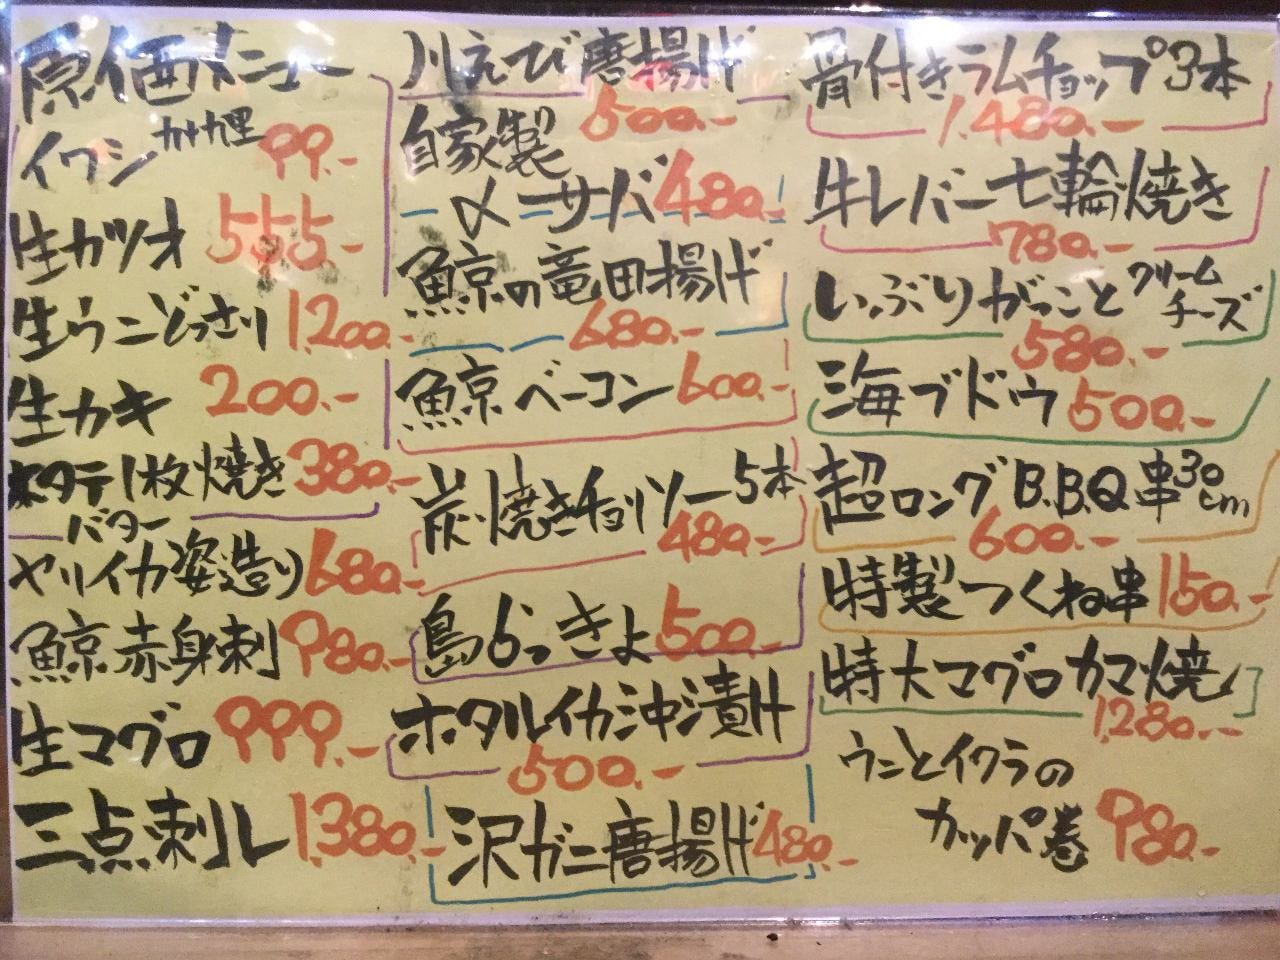 原価メニュー
イワシカナカ里 99.-
生カツオ 555.-
生ウニどっさり 1,200.-
生カキ 200.-
ホタテ1枚焼き 380.-
バター
ヤリイカ姿造り 680.-
鯨赤身刺 980.-
生マグロ 999.-
三点刺し 1,380.-
川えび唐揚げ
500.-
自家製
〆ーサバ 480.-
鯨の竜田揚げ
680.-
鯨ベーコン 600.-
炭焼きチョリソー5本
480.-
島らっきょ 500.-
ホタルイカ沖漬け
500.-
沢ガニ唐揚げ 480.-
骨付きラムチョップ3本
1,480.-
牛レバー七輪焼き
780.-
いぶりがっことクリームチーズ
580.-
海ブドウ 500.-
超ロングB.B.Q串30cm
600.-
特製つくね串 150.-
特大マグロカマ焼
1,280.-
ウニとイクラの
カッパ巻 980.-